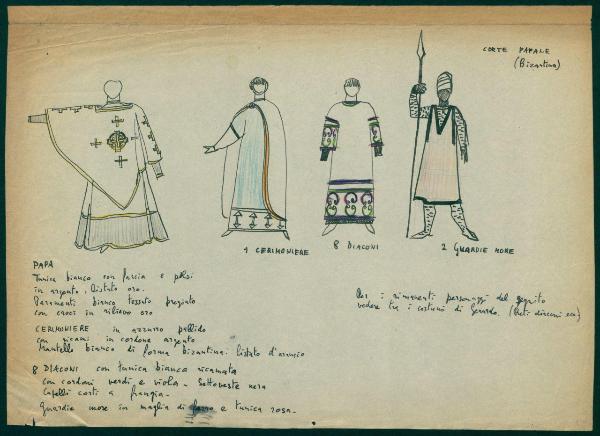 CORTE PAPALE
(Bizantina)
1 CERIMONIERE
8 DIACONI
2 GUARDIE MORE
PAPA
Tunica bianca con fascia e polsi
in argento, listato oro.
Paramenti bianco tessuto pregiato
con croci in rilievo oro
CERIMONIERE in azzurro pallido
con ricami in cordone argento
Mantello bianco di forma bizantina. listato d'arancio
8 DIACONI con tunica bianca ricamata
con cordoni verdi e viola - Sottoveste nera
Capelli corti a frangia -
Guardie more in maglia di ferro e tunica rosa -
Per i rimanenti personaggi del seguito
vedere tra i costumi di (Preti diaconi ecc)